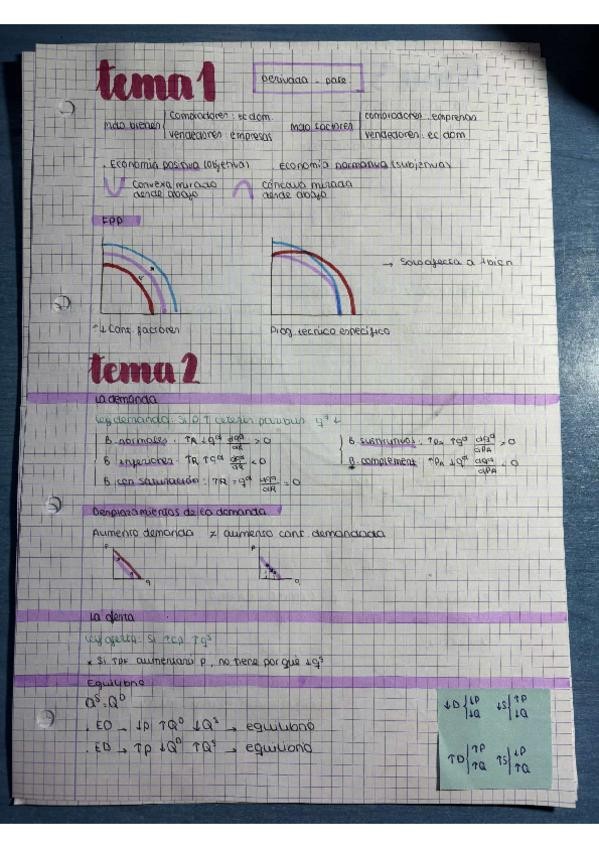 tema 1
Derivada - base
Mdo bienes | compradores: ec dom.
vendedores: empresas
Mdo factores | compradores: empresas
vendedores: ec dom
. Economía positiva (objetiva) . economía normativa (subjetiva)
convexa mirado desde abajo
cóncava mirada desde abajo
FPP
→ Solo afecta a 1 bien
↑↓ Cant. factores
Prog. tecnico especifico
tema 2
La demanda
Ley demanda: Si P↑ ceteris paribus qᵈ ↓
B. normales: ↑R ↓qᵈ dqᵈ/dR > 0
B inferiores: ↑R ↑qᵈ dqᵈ/dR < 0
B con saturación: ↑R = qᵈ dqᵈ/dR = 0
B. sustitutivos: ↑Pa ↑qᵈ dqᵈ/dPA > 0
B. complement: ↑Pa ↓qᵈ dqᵈ/dPA < 0
Desplazamientos de la demanda
Aumento demanda ≠ aumento cant. demandada
P
Q
P
Q
La oferta
Ley oferta: Si ↑P ↑qˢ
* Si ↑PF aumentará P, no tiene por qué ↓qˢ
Equilibrio
Qˢ=Qᴰ
. EO → ↓P ↑Qᴰ ↓Qˢ → equilibrio
. ED → ↑P ↓Qᴰ ↑Qˢ → equilibrio
↓D | ↓P ↓Q
↓S | ↑P ↓Q
↑D | ↑P ↑Q
↑S | ↓P ↑Q